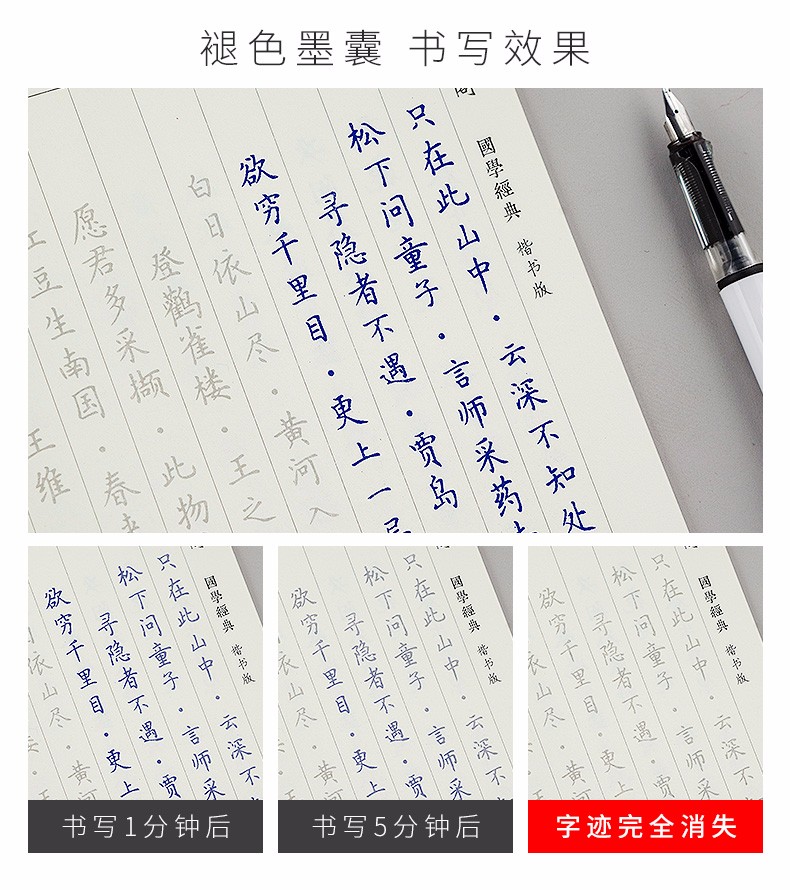 褪色墨囊 书写效果
國學經典 楷书版
只在此山中·云深不知处
松下问童子·言师采药
寻隐者不遇·贾岛
欲穷千里目·更上一
白日依山尽·黄河入
登鹳雀楼·王之
愿君多采撷·此物
豆生南国·春
王维
國學經典 楷书版
只在此山中·云深不
松下问童子·言师采
寻隐者不遇·贾
欲穷千里目·更上
依山尽·黄
书写1分钟后
國學經典 楷书版
只在此山中·云深不
松下问童子·言师采
寻隐者不遇·贾
欲穷千里目·更上
依山尽·黄
书写5分钟后
國學經典 楷书版
只在此山中·云深不
松下问童子·言师采
寻隐者不遇·贾
欲穷千里目·更上
依山尽·黄
字迹完全消失